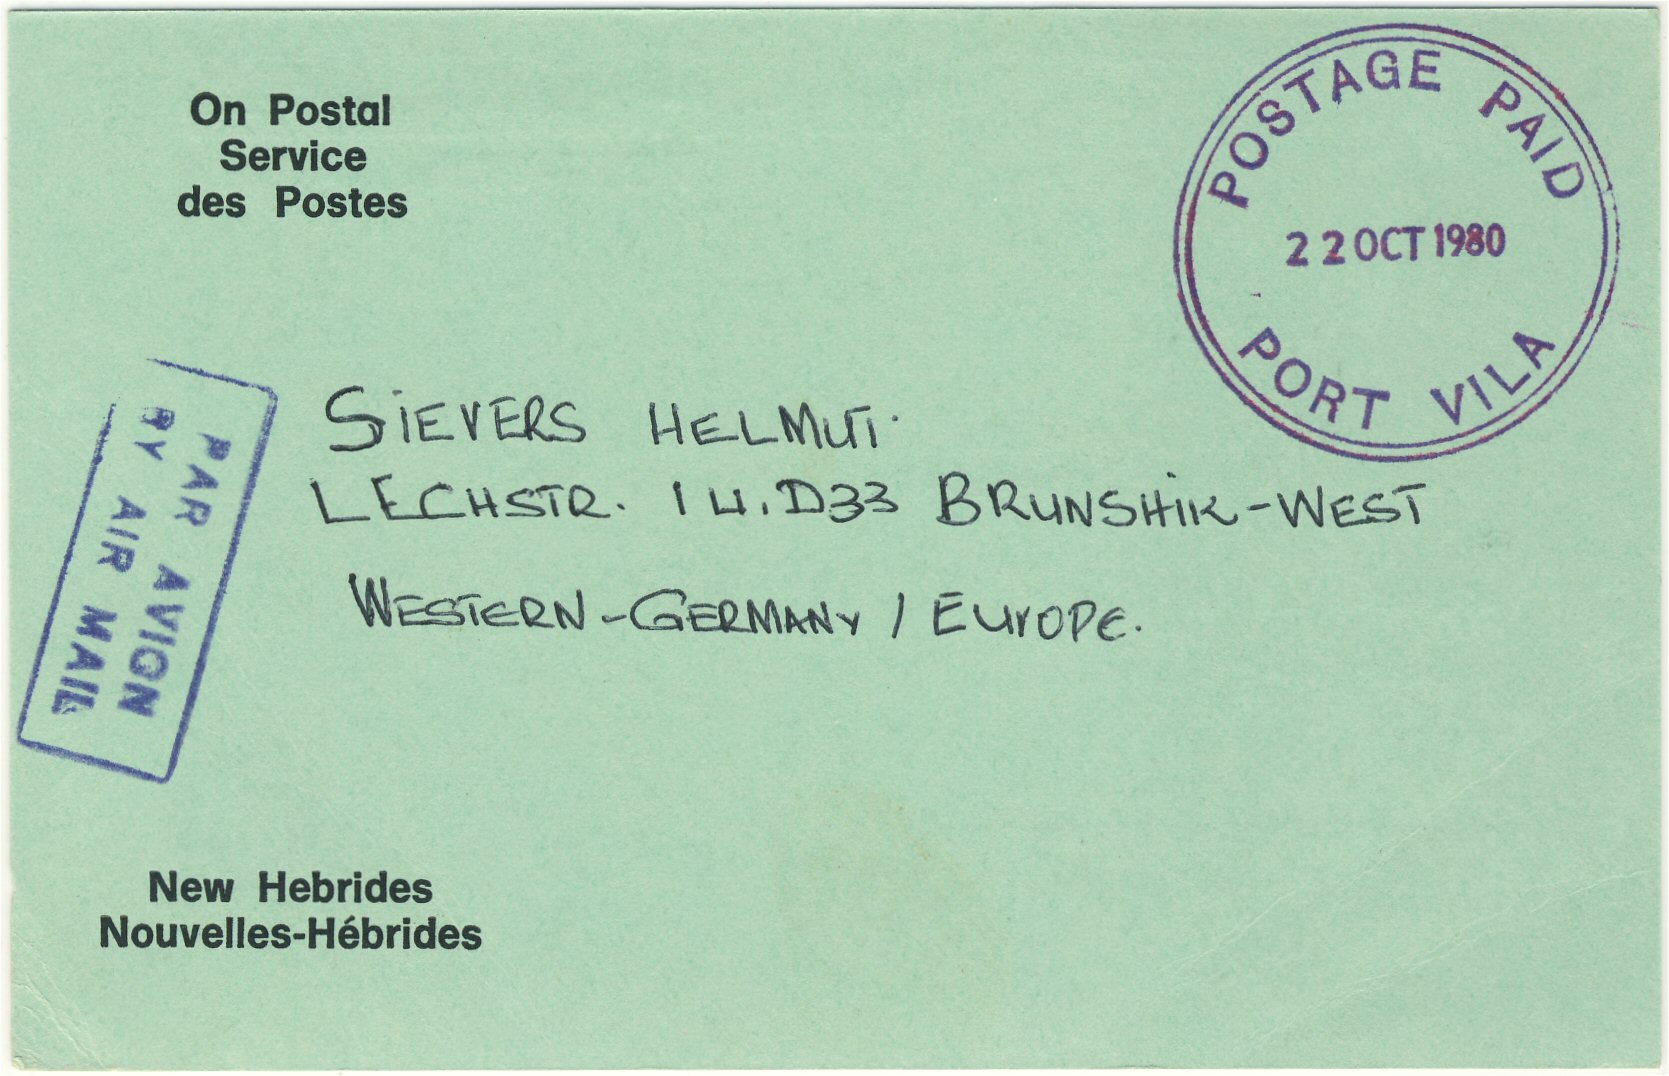 On Postal
Service
des Postes
POSTAGE PAID
22 OCT 1980
PORT VILA
PAR AVION
BY AIR MAIL
SIEVERS HELMUT.
LECHSTR. 14. D33 BRUNSHIK-WEST
WESTERN-GERMANY / EUROPE.
New Hebrides
Nouvelles-Hébrides